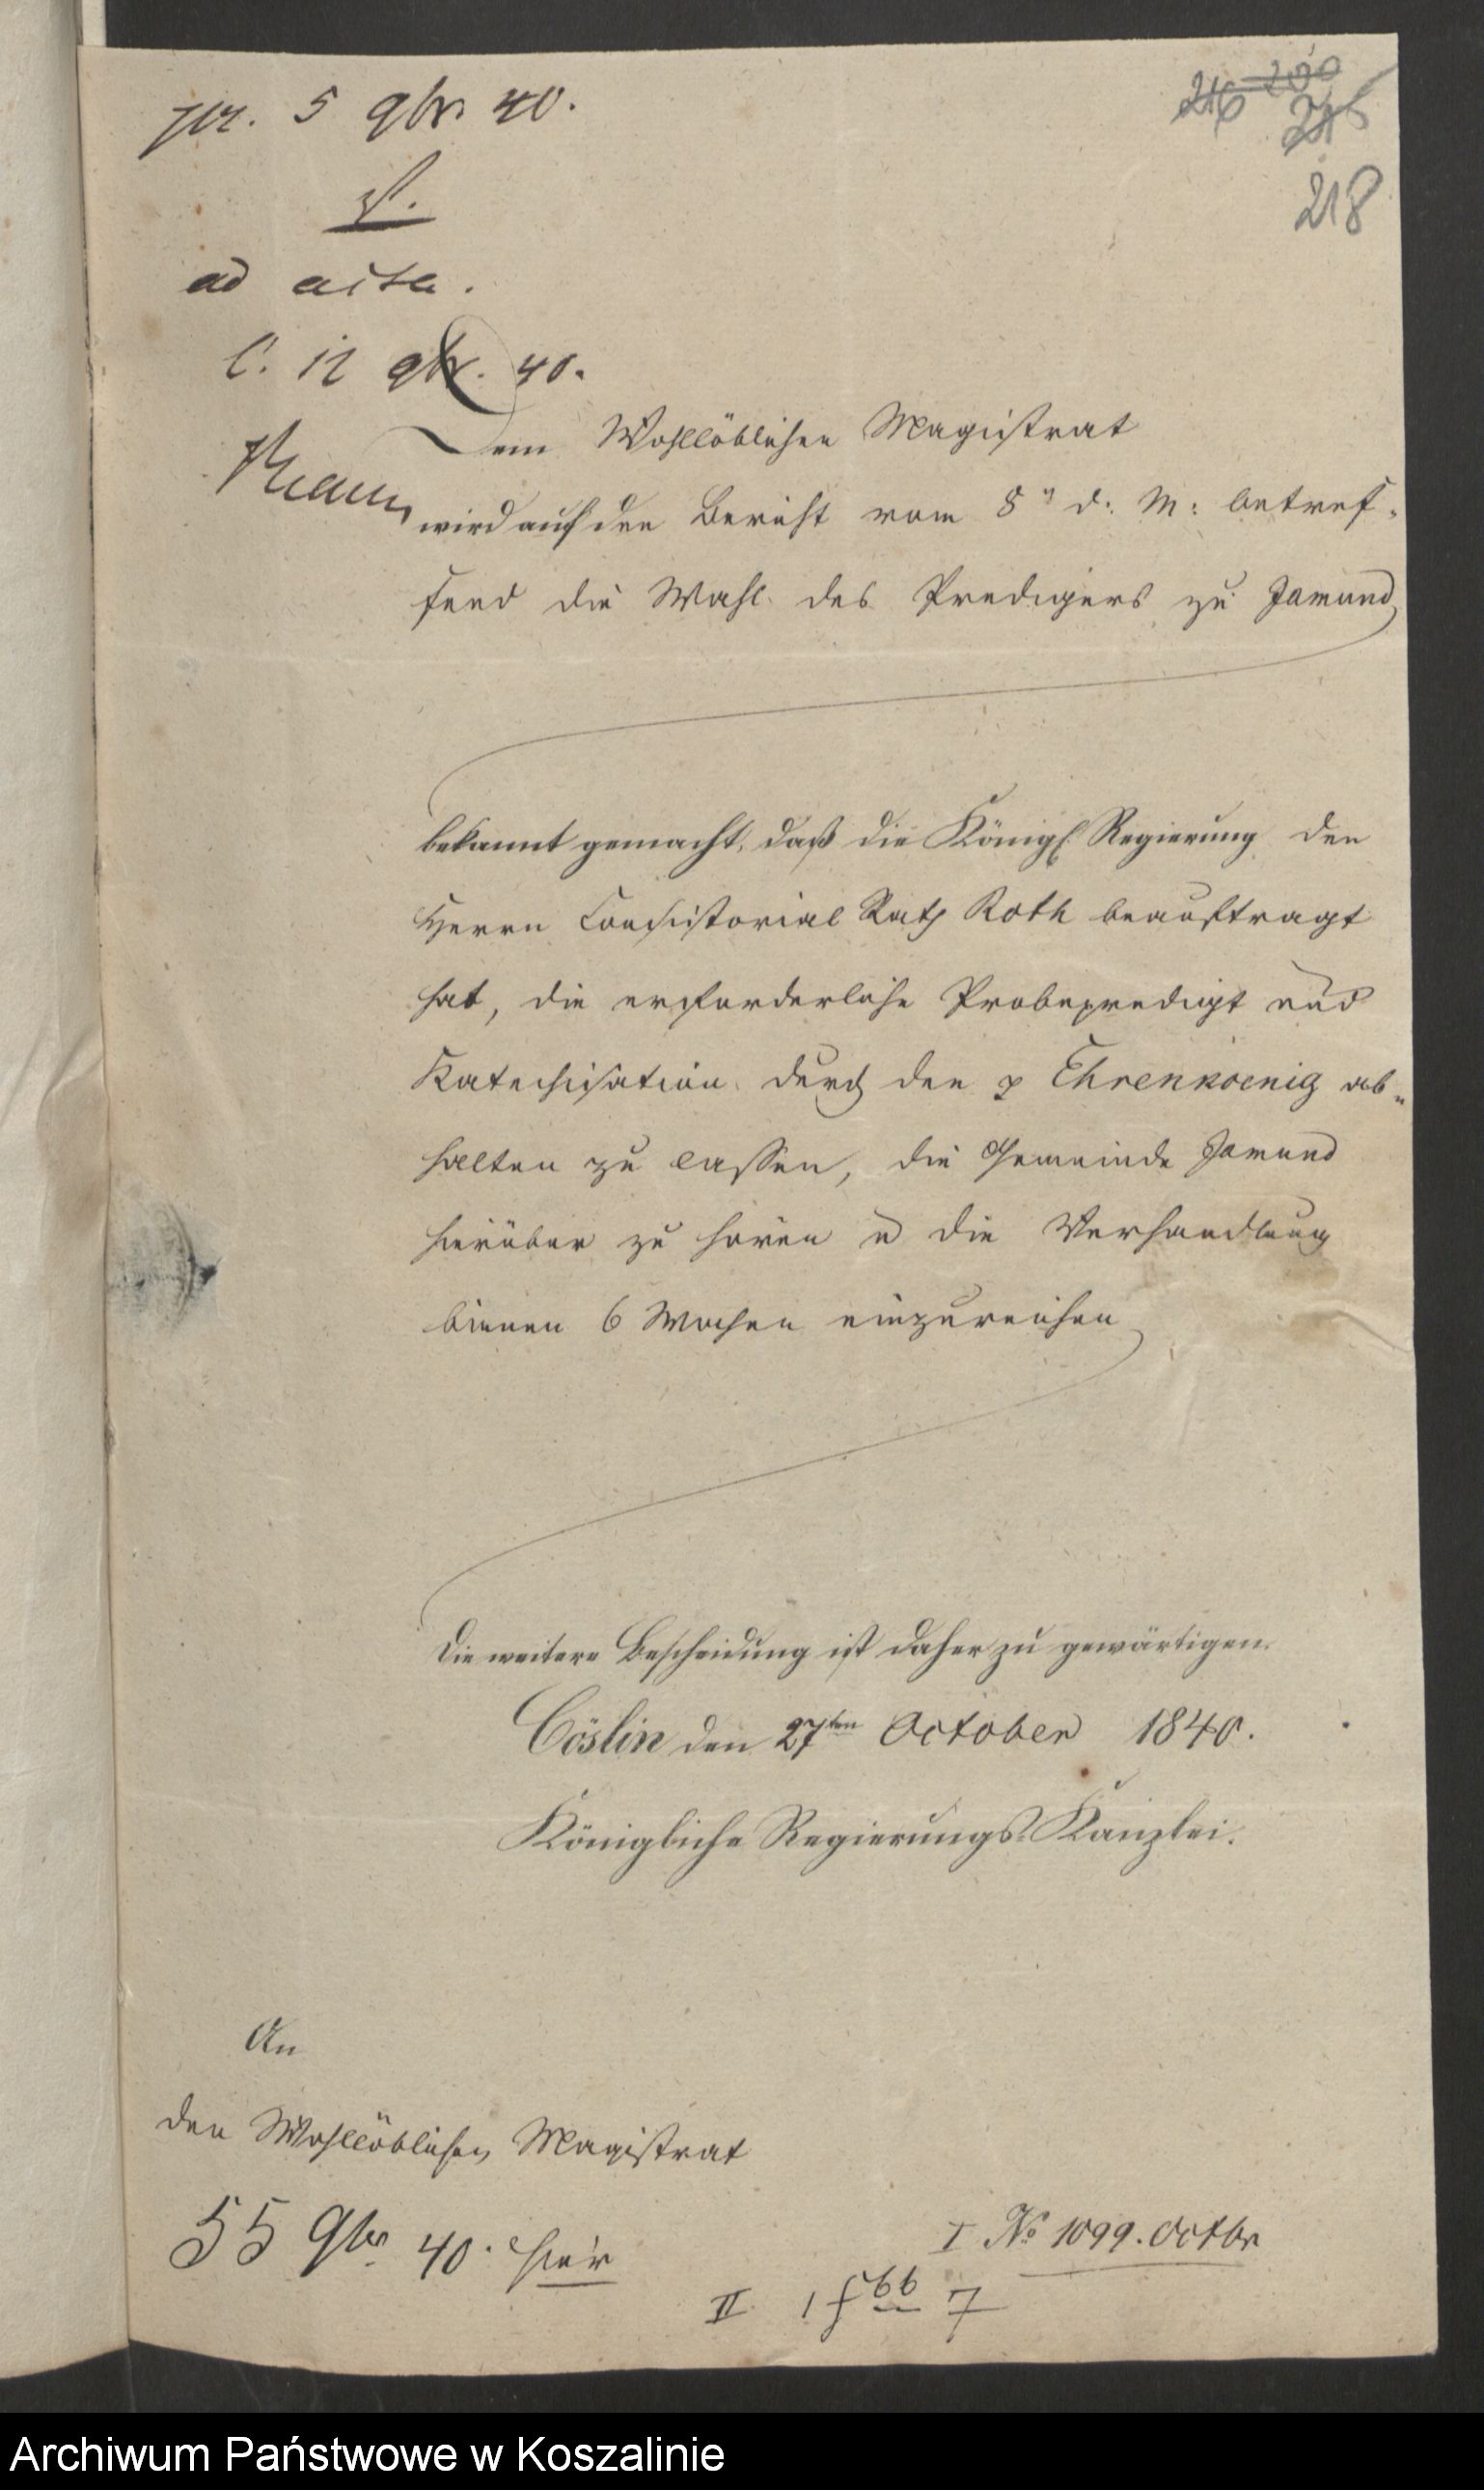 pr. 5 9br. 40.
216 200
216
218
ad acta.
C. 12 9br. 40.
Dem Wohllöblichen Magistrat
wird auf den Bericht vom 8" d: M: betref-
fend die Wahl des Predigers zu Jamund
bekannt gemacht, daß die Königl Regierung den
Herrn Consistorial Rath Roth beauftragt
hat, die erforderliche Probepredigt und
Katechisation durch den p Ehrenkoenig ab-
halten zu lassen, die Gemeinde Jamund
hierüber zu hören u die Verhandlung
binnen 6 Wochen einzureichen
Die weitere Bescheidung ist daher zu gewärtigen.
Cöslin den 27ten October 1840.
Königliche Regierungs-Kanzlei.
An
den Wohllöblichen Magistrat
55 9br 40. hier
I No 1099. Octbr
II
Archiwum Państwowe w Koszalinie